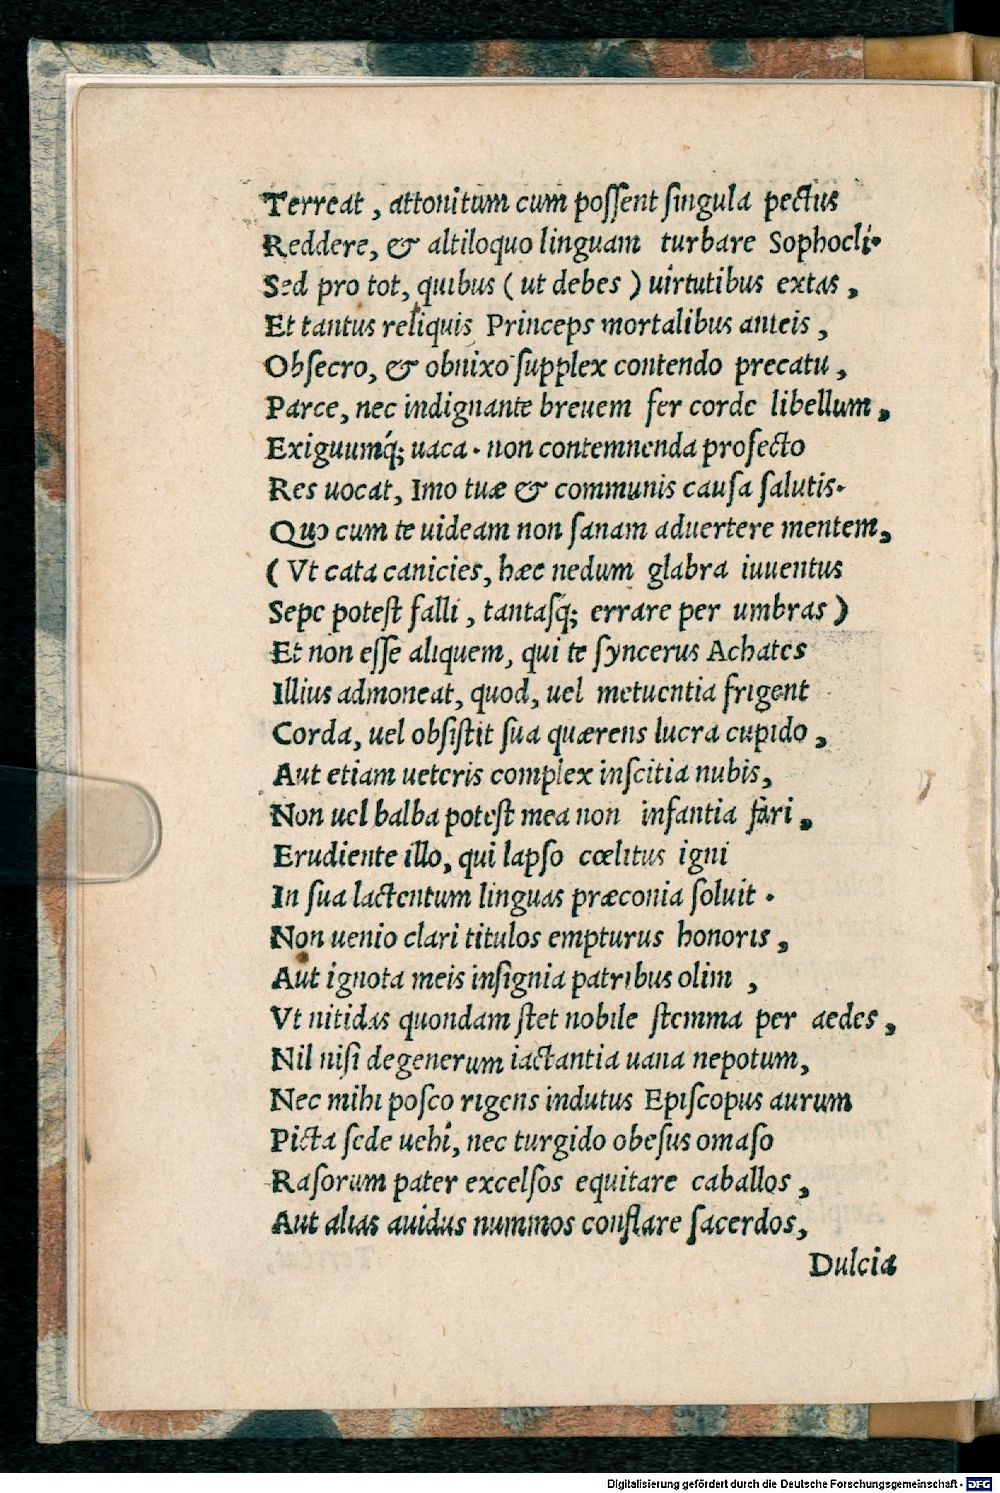 Terreat, attonitum cum poſſent ſingula pectus
Reddere, & altiloquo linguam turbare Sophocli·
Sed pro tot, quibus ( ut debes ) uirtutibus extas,
Et tantus reliquis Princeps mortalibus anteis,
Obſecro, & obnixo ſupplex contendo precatu,
Parce, nec indignante breuem fer corde libellum,
Exiguumq́; uaca· non contemnenda profecto
Res uocat, Imo tuæ & communis cauſa ſalutis·
Quo cum te uideam non ſanam aduertere mentem,
( Vt cata canicies, hæc nedum glabra iuuentus
Sepe poteſt falli, tantaſq́; errare per umbras )
Et non eſſe aliquem, qui te ſyncerus Achates
Illius admoneat, quod, uel metuentia frigent
Corda, uel obſiſtit ſua quærens lucra cupido,
Aut etiam ueteris complex inſcitia nubis,
Non uel balba poteſt mea non infantia fari,
Erudiente illo, qui lapſo cœlitus igni
In ſua lactentum linguas præconia ſoluit·
Non uenio clari titulos empturus honoris,
Aut ignota meis inſignia patribus olim,
Vt nitidas quondam ſtet nobile ſtemma per aedes,
Nil niſi degenerum iactantia uana nepotum,
Nec mihi poſco rigens indutus Epiſcopus aurum
Picta ſede uehi, nec turgido obeſus omaſo
Raſorum pater excelſos equitare caballos,
Aut alias auidus nummos conflare ſacerdos,
Dulcia
Digitalisierung gefördert durch die Deutsche Forschungsgemeinschaft - DFG